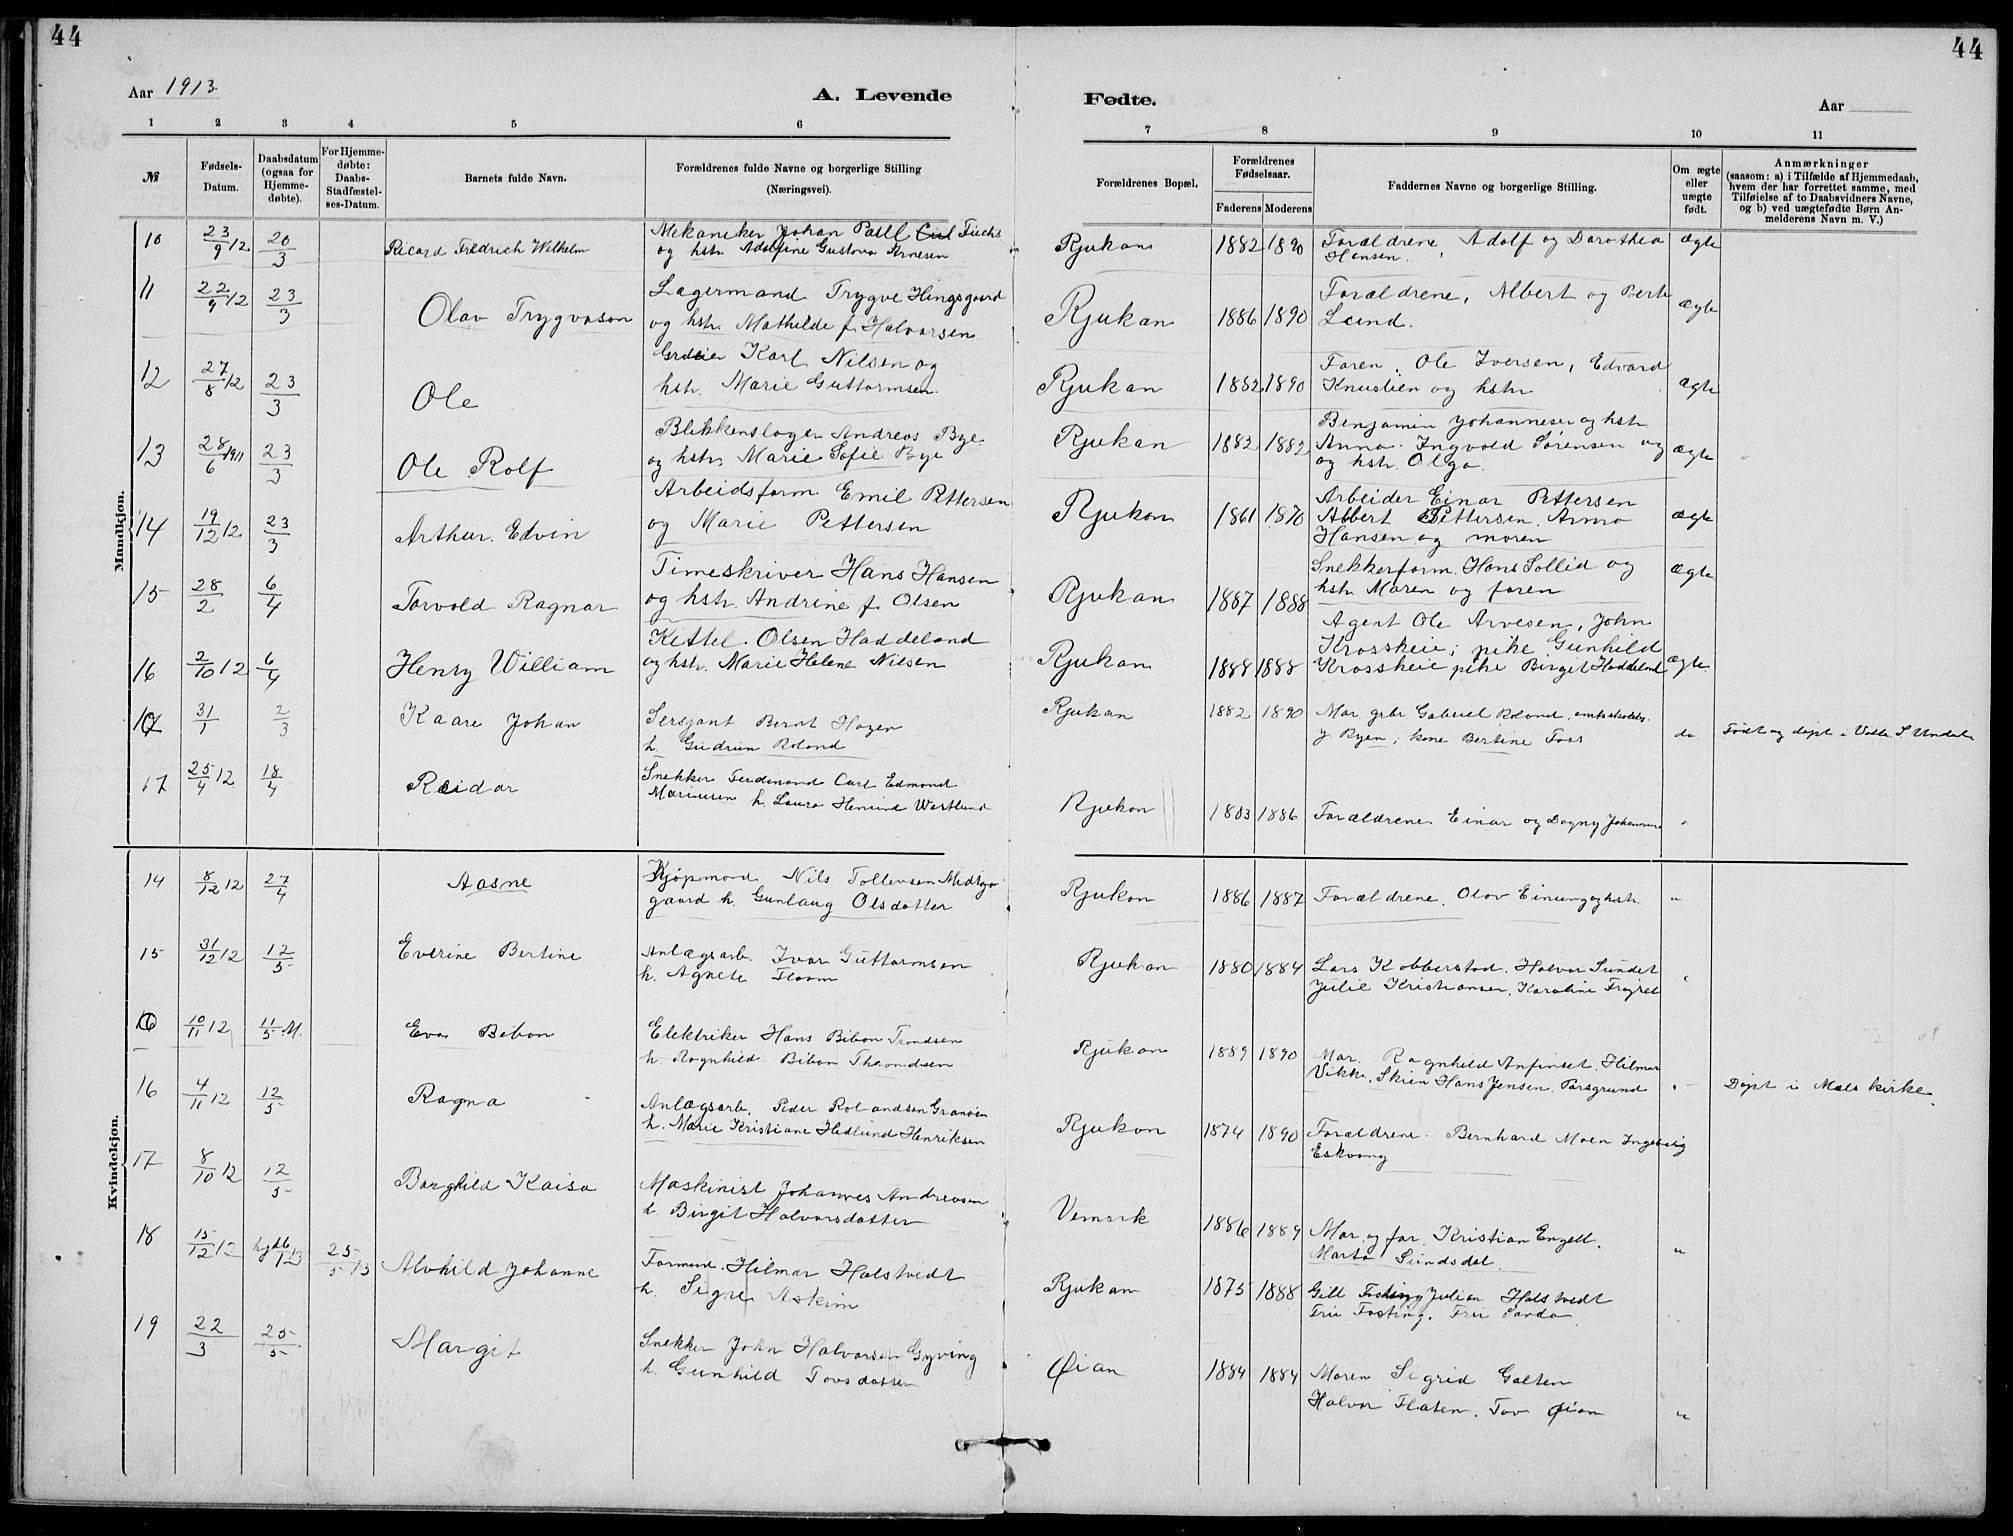 44
44
Aar 1913.
A. Levende
Fødte.
Aar
1 2 3 4 5 6
7 8 9 10 11
№
Fødsels-
Datum.
Daabsdatum
(ogsaa for
Hjemme-
døbte).
For Hjemme-
døbte:
Daabs-
Stadfæstel-
ses-Datum.
Barnets fulde Navn.
Forældrenes fulde Navne og borgerlige Stilling
(Næringsvei).
Forældrenes Bopæl.
Forældrenes
Fødselsaar.
Faderens Moderens
Faddernes Navne og borgerlige Stilling.
Om ægte
eller
uægte
født.
Anmærkninger
(saasom: a) i Tilfælde af Hjemmedaab,
hvem der har forrettet samme, med
Tilføielse af to Daabsvidners Navne,
og b) ved uægtefødte Børn An-
melderens Navn m. V.)
Mandkjøn.
10 23/9 12 20/3 Ricard Fredrich Wilhelm
Mekaniker Johan Paul Fuchs
og hstr. Adolfine Gustava Arnesen
Rjukan 1882 1890
Forældrene, Adolf og Dorothea
Hansen.
ægte
11 22/9 12 23/3 Olav Trygvason
Lagermand Trygve Hingsgaard
og hstr. Mathilde f. Halvorsen
Rjukan 1886 1890
Forældrene, Albert og Berte
Lund.
ægte
12 27/8 12 23/3 Ole
Karl Nilsen og
hstr. Marie Guttormsen
Rjukan 1882 1890
Faren, Ole Iversen, Edvard
Knustien og hstr
ægte
13 28/6 1911 23/3 Ole Rolf
Blikkenslager Andreas Bye
og hstr. Marie Sofie Bye
Rjukan 1882 1882
Benjamin Johannesen og hstr
Anna. Ingvold Sørensen og
og hstr. Olga.
ægte
14 19/12 12 23/3 Arthur. Edvin
Arbeidsform. Emil Pettersen
og Marie Pettersen
Rjukan 1861 1870
Arbeider Einar Pettersen
Albert Pettersen. Anna
Hansen og moren
ægte
15 28/2 6/4 Torvold Ragnar
Timeskriver Hans Hansen
og hstr. Andrine f. Olsen
Rjukan 1887 1888
Snekkerform. Hans Sollid og
hstr. Maren og faren
ægte
16 2/10 12 6/4 Henry William
Kittel Olsen Haddeland
og hstr. Marie Helene Nilsen
Rjukan 1888 1888
Agent Ole Arvesen, John
Krossheie, pike Gunhild
Krossheie pike Birget Haddeland
ægte
31/1 2/3 Kaare Johan
Sersjant Bernt Hagen
h. Gudrun Roland
Rjukan 1882 1890
Mor, grbr Gabriel Roland,
Ryen, kone Bertine Foss
do
Født og døpt i Valle. S. Undal
17 25/4 12 18/4 Reidar
Snekker Ferdinand Carl Edmond
Mariusen h. Laura Westlund
Rjukan 1883 1886
Forældrene. Einar og Dagny Johannesen
"
Kvindekjøn.
14 8/12 12 27/4 Aasne
Kjøpmand Nils Tollevsen Midtgaard
gaard h. Gunlaug Olsdatter
Rjukan 1886 1887
Forældrene. Olav Einung og hstr.
"
15 31/12 12 12/5 Everine Bertine
Anlægsarb. Ivar Guttormsen
h. Agnete Floom
Rjukan 1880 1884
Lars Kobberstad. Halvor Sundet
Julie Kristiansen. Karoline
"
10/11 12 11/5 M. Eva Bibow
Elektriker Hans Bibow Trondsen
h. Ragnhild Bibow Throndsen
Rjukan 1889 1890
Mor. Ragnhild Anfinset, Hilmar
Vikh, Skien Hans Jensen. Porsgrund
"
Døpt i Mæls kirke.
16 4/11 12 12/5 Ragna
Anlægsarb. Peder Rolandsen Granøen
h. Marie Kristiane Hedlund Henriksen
Rjukan 1874 1890
Forældrene. Bernhard Moen
Eskvang
17 8/10 12 12/5 Borghild Kaisa
Maskinist Johannes Andreasen
h. Birgit Halvorsdatter
Vemork 1886 1889
Mor og far. Kristian Engell.
Marta Sundsdal.
"
18 15/12 12 hjdb 25/5 13 Alvhild Johanne
Formand. Hilmar Halstvedt
h. Signe Askim
Rjukan 1875 1888
Julian Halstvedt
Fru Fosting. Fru Sanda
19 22/3 25/5 Margit
Snekker John Halvorsen Gyving
h. Gunhild Tovsdatter
Øian 1884 1884
Moren Sigrid Galten
Halvor Flaten. Tov Øian
"